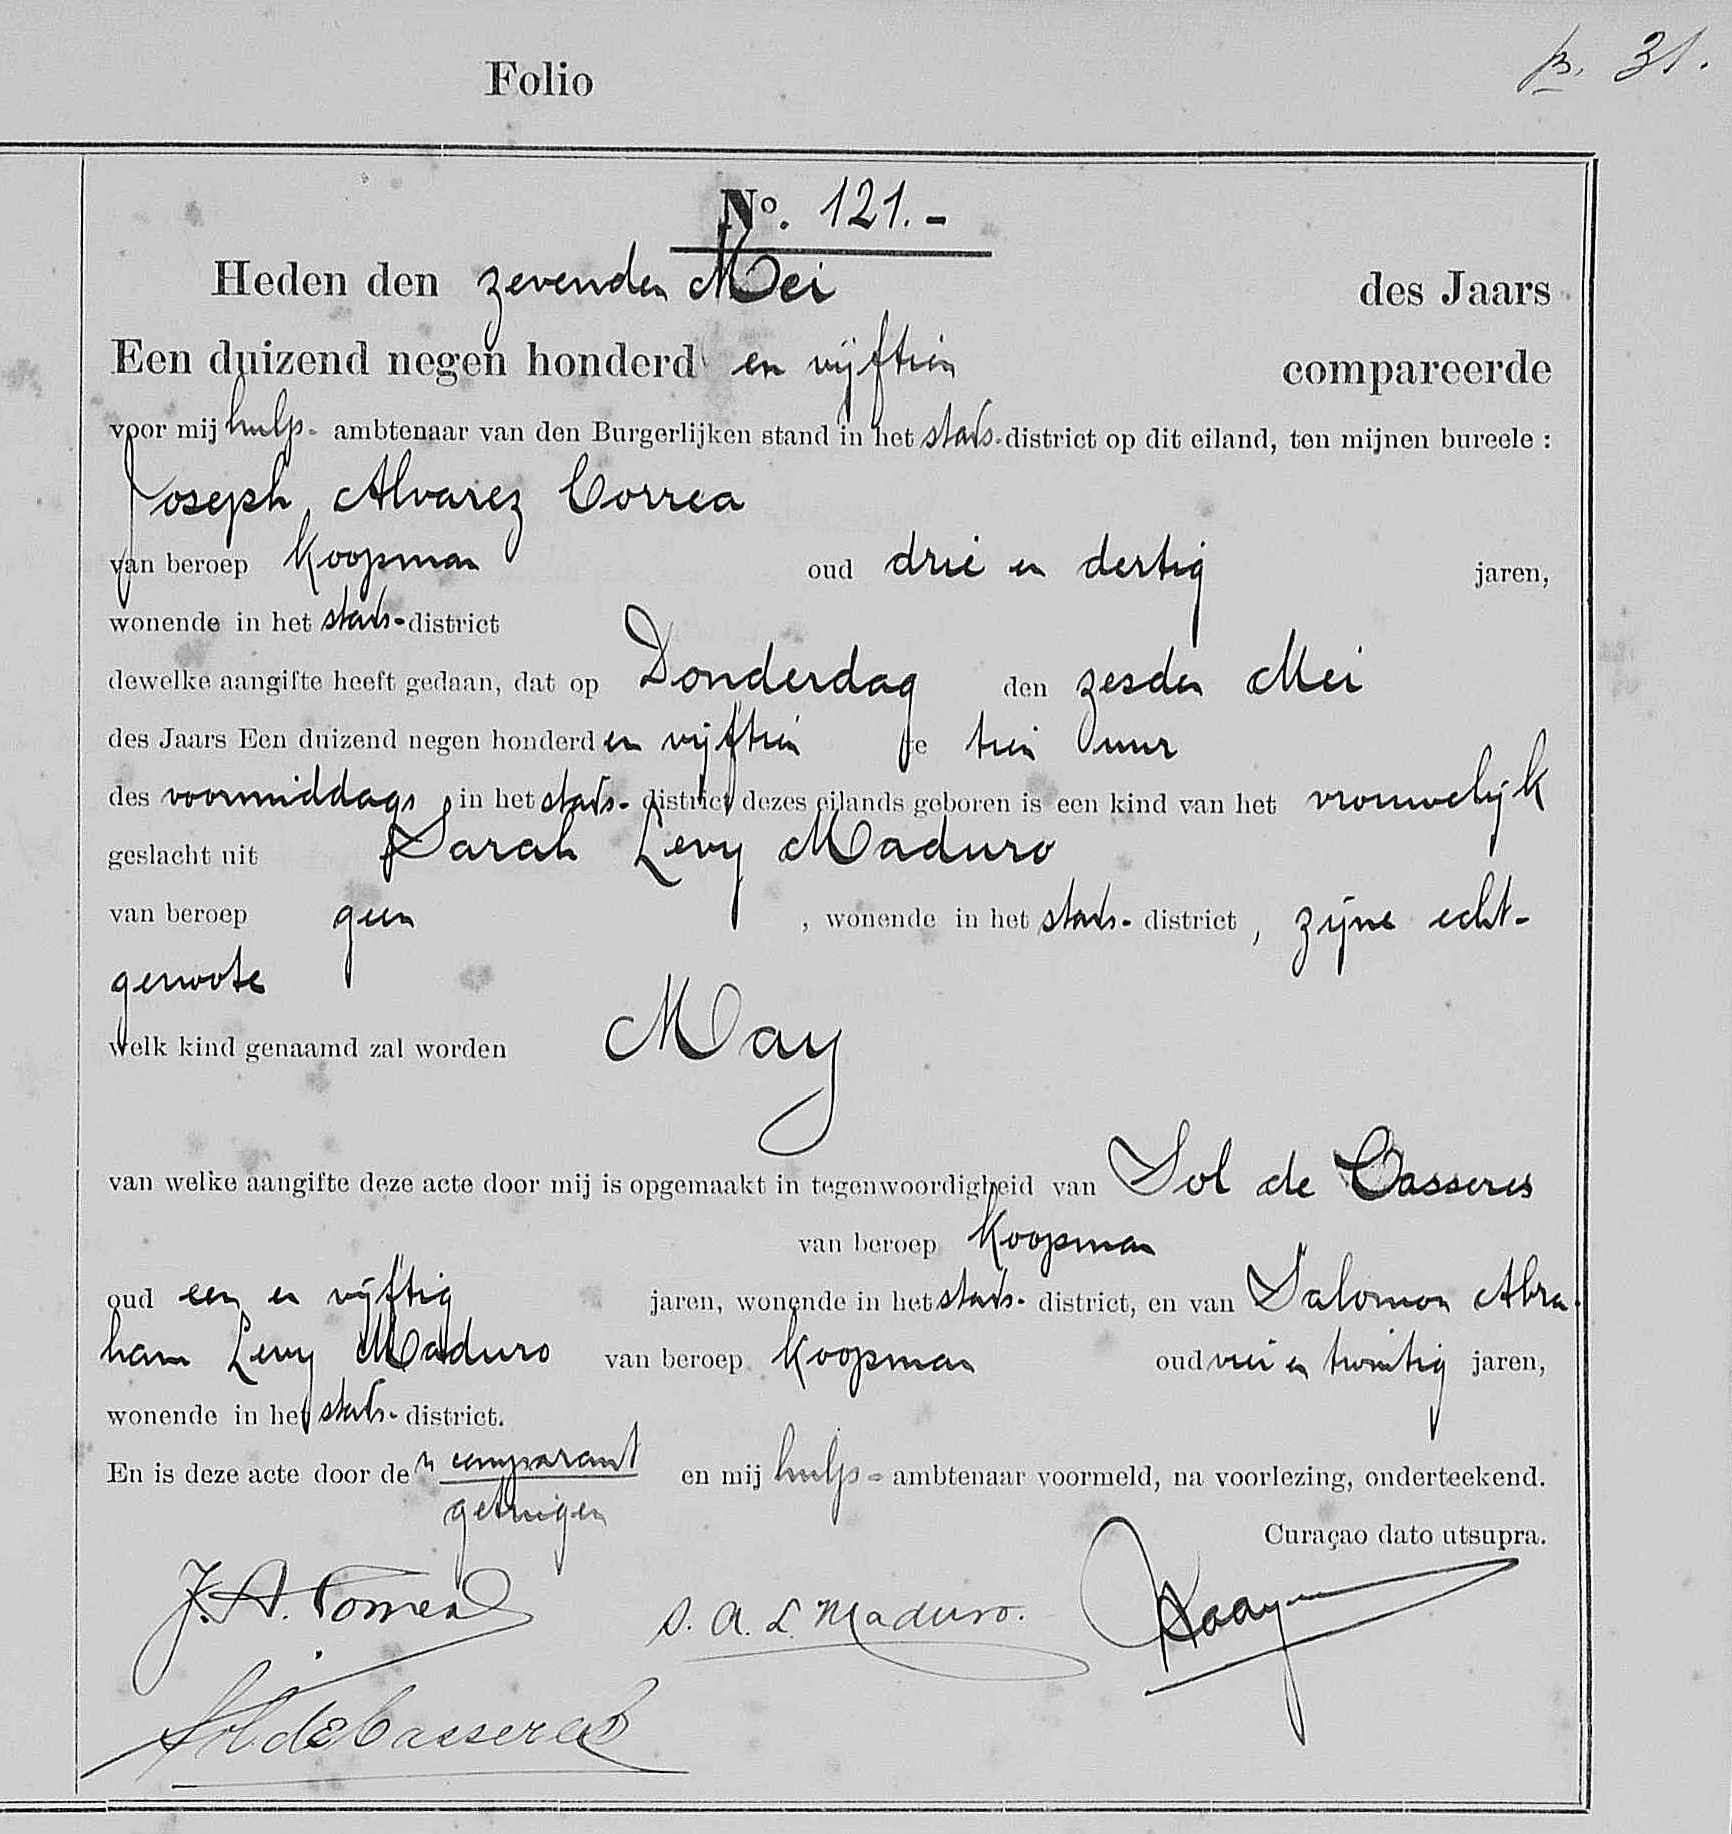 p. 31.
Folio
No. 121.-
Heden den zevenden Mei des Jaars
Een duizend negen honderd en vijftien compareerde
voor mij hulp- ambtenaar van den Burgerlijken stand in het stads-district op dit eiland, ten mijnen bureele :
Joseph Alvarez Correa
van beroep Koopman oud drie en dertig jaren,
wonende in het stads-district
dewelke aangifte heeft gedaan, dat op Donderdag den zesden Mei
des Jaars Een duizend negen honderd en vijftien te tien uur
des voormiddags, in het stads- district dezes eilands geboren is een kind van het vrouwelijk
geslacht uit Sarah Levy Maduro
van beroep geen , wonende in het stads- district, zijne echt-
genoote
welk kind genaamd zal worden May
van welke aangifte deze acte door mij is opgemaakt in tegenwoordigheid van Sol de Casseres
van beroep Koopman
oud een en vijftig jaren, wonende in het stads- district, en van Salomon Abra-
ham Levy Maduro van beroep Koopman oud vier en twintig jaren,
wonende in het stads- district.
En is deze acte door den comparant en mij hulp- ambtenaar voormeld, na voorlezing, onderteekend.
getuigen
Curaçao dato utsupra.
J. A. Correa
S. A. L. Maduro.
Sol de Casseres